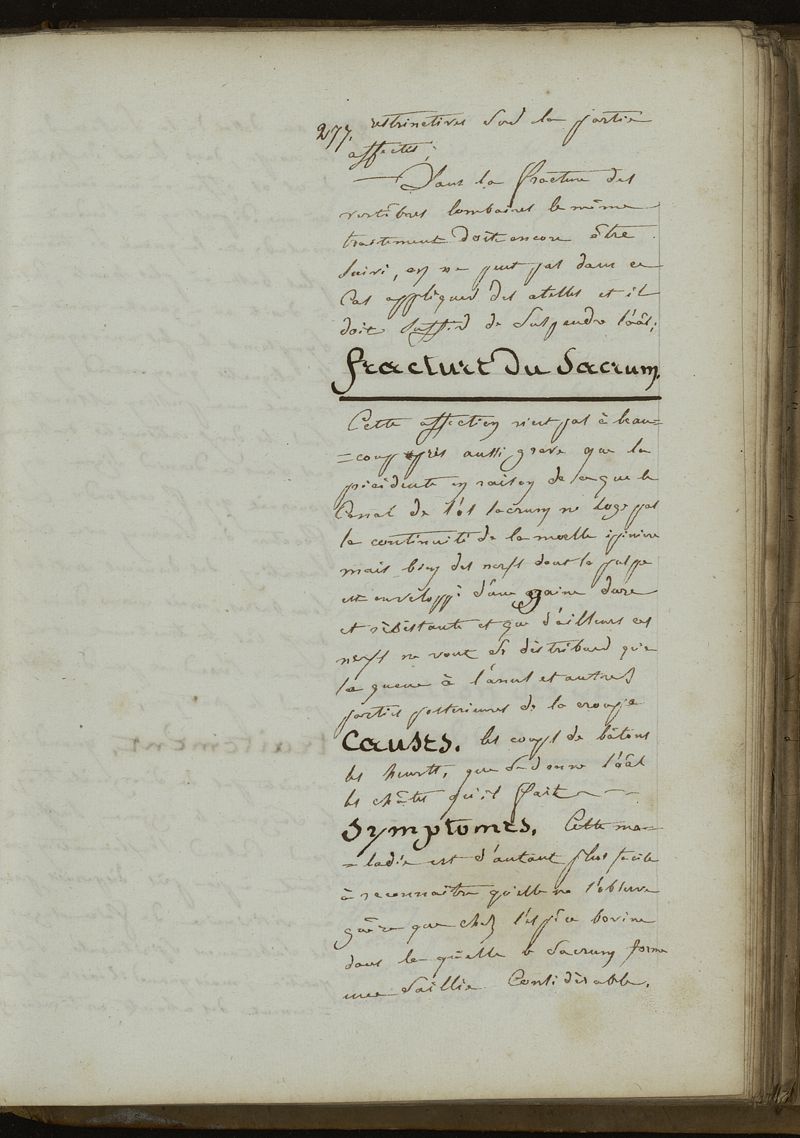 277. restrinctives Sur la partie
affectée;
Dans la fracture des
vertèbres lombaires le même
traitement doit encore être
Suivi, on ne peut pas dans ce
Cas appliquer des atelles et il
doit Suffir de Suspendre l'âal;
fracture Du Sacrum.
Cette affection n'est pas à beau=
=coup près aussi grave que la
précédente en raison de ce que le
Canal de l'os sacrum ne loge pas
la continuité de la moelle épinière
mais bien des nerfs dont la pulpe
est enveloppé d'une gaine dure
et résistante et que d'ailleurs ces
nerfs ne vont se distribuer qu'à
la queue à l'anus et autres
parties posterieures de la croupe
Causes. les coups de bâtons
les heurts, que se donne l'âal
les chûtes qu'il fait
Symptomes. Cette ma=
=ladie est d'autant plus facile
à reconnaître qu'elle ne s'observe
guère que chez l'espèce bovine
dans la qu'elle le Sacrum forme
une Saillie Considérable.